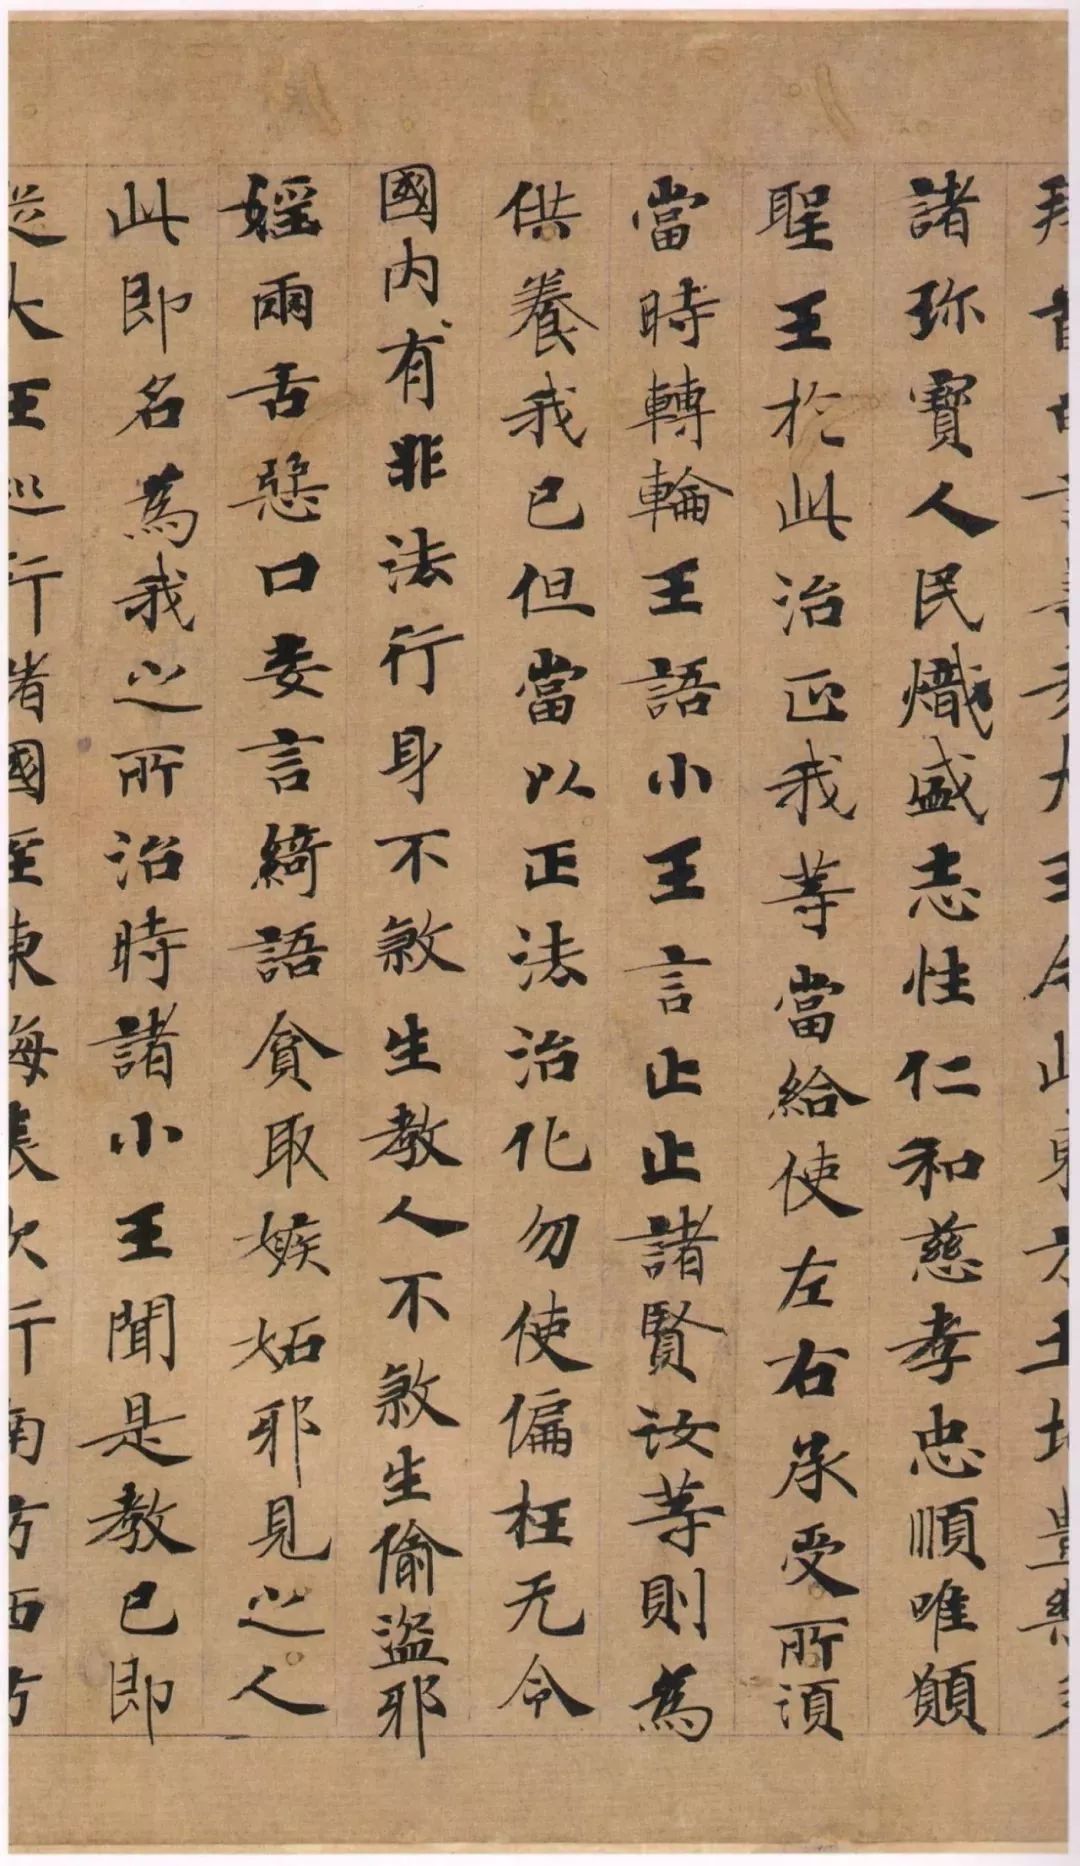 拜首言善哉大王今此東方土地豐樂多
諸珎寶人民熾盛志性仁和慈孝忠順唯願
聖王於此治正我等當給使左右承受所須
當時轉輪王語小王言止止諸賢汝等則為
供養我已但當以正法治化勿使偏枉无令
國内有非法行身不煞生教人不煞生偷盜邪
婬兩舌惡口妄言綺語貪取嫉妬邪見之人
此即名為我之所治時諸小王聞是教已即
從大王巡行諸國至東海表次行南方西方